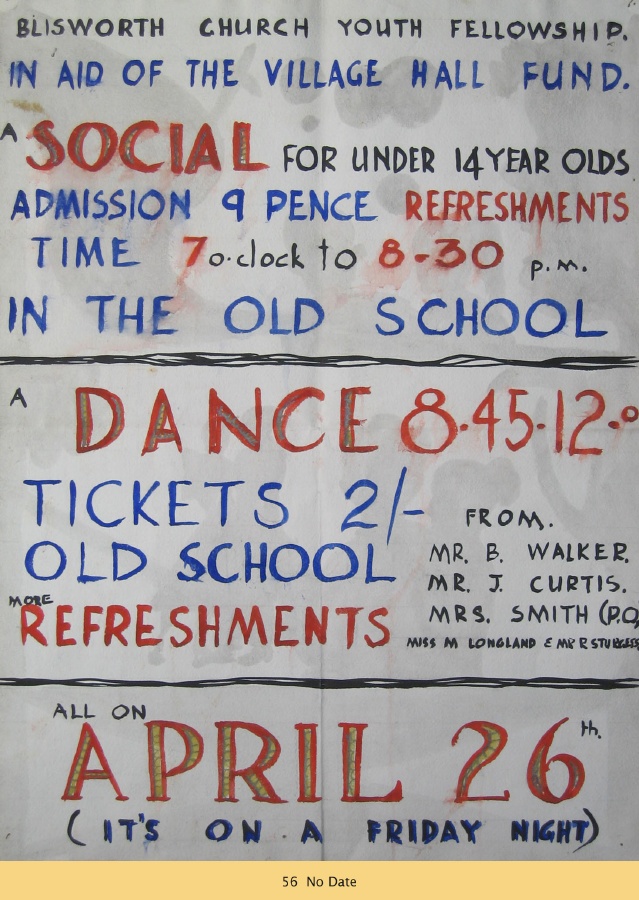 BLISWORTH CHURCH YOUTH FELLOWSHIP.
IN AID OF THE VILLAGE HALL FUND.
A SOCIAL FOR UNDER 14 YEAR OLDS
ADMISSION 9 PENCE REFRESHMENTS
TIME 7 o.clock to 8-30 p.m.
IN THE OLD SCHOOL
A DANCE 8.45-12.0
TICKETS 2/- FROM.
OLD SCHOOL MR. B. WALKER.
MR. J. CURTIS.
MORE MRS. SMITH (P.O.
REFRESHMENTS MISS M LONGLAND & MR R STURGESS
ALL ON
APRIL 26th.
(IT'S ON A FRIDAY NIGHT)
56 No Date